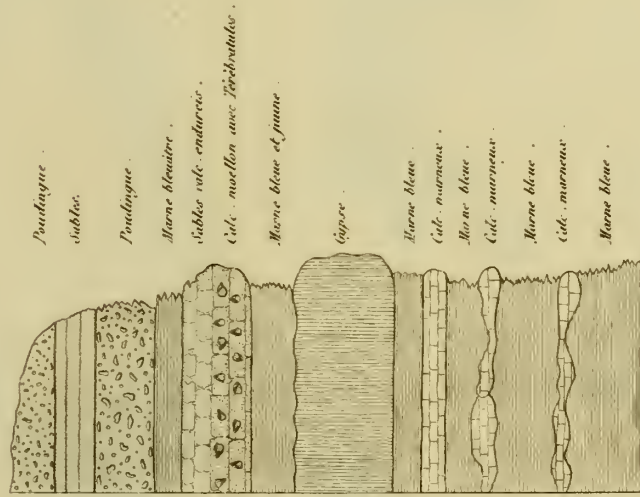 Poudingue.
Sables.
Poudingue.
Marne bleuâtre.
Sables calc. endurcis.
Calc. moellon avec Térébratules.
Marne bleue et jaune.
Gypse.
Marne bleue.
Calc. marneux.
Marne bleue.
Calc. marneux.
Marne bleue.
Calc. marneux.
Marne bleue.